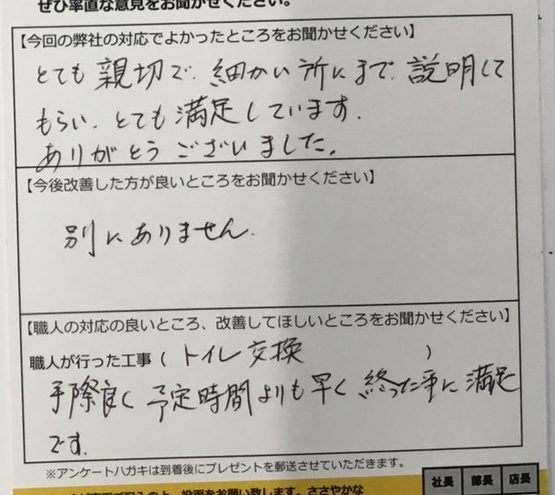 ぜひ率直な意見をお聞かせください。
【今回の弊社の対応でよかったところをお聞かせください】
とても親切で、細かい所にまで、説明して
もらい、とても満足しています。
ありがとうございました。
【今後改善した方が良いところをお聞かせください】
別にありません。
【職人の対応の良いところ、改善してほしいところをお聞かせください】
職人が行った工事（トイレ交換）
手際良く予定時間よりも早く終った事に満足
です。
※アンケートハガキは到着後にプレゼントを郵送させていただきます。
社長 部長 店長